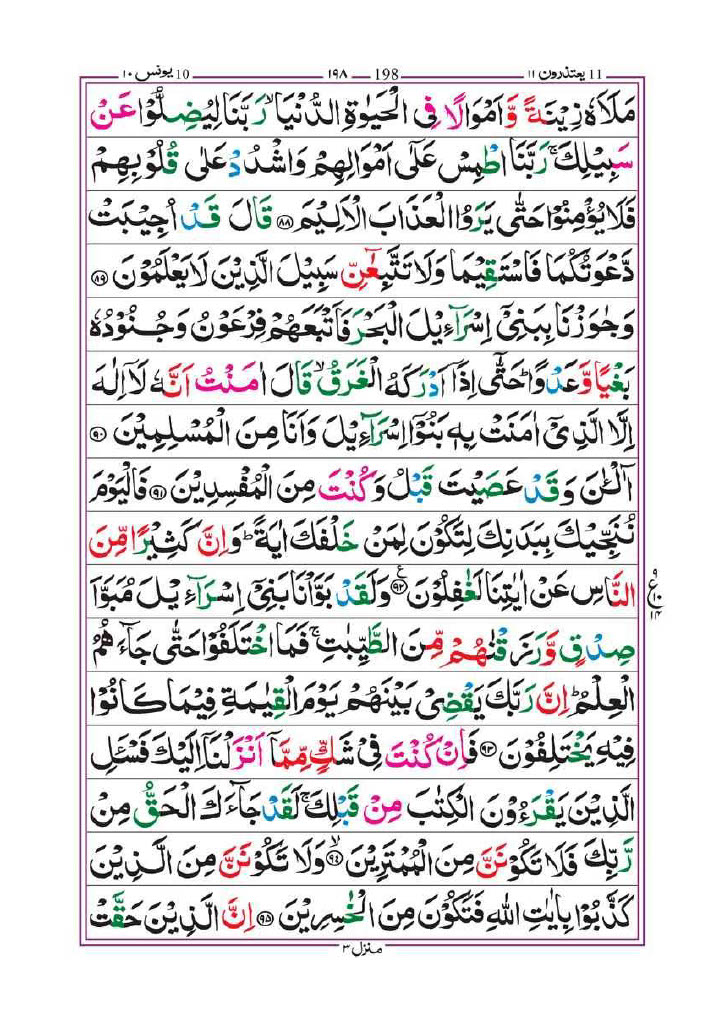 يعتذرون ١١ 11 198 ١٩٨ يونس ١٠ 10
مَلَاَهٗ زِيْنَةً وَّاَمْوَالًا فِى الْحَيٰوةِ الدُّنْيَا ۙ رَبَّنَا لِيُضِلُّوْا عَنْ
سَبِيْلِكَ ۚ رَبَّنَا اطْمِسْ عَلٰٓى اَمْوَالِهِمْ وَاشْدُدْ عَلٰى قُلُوْبِهِمْ
فَلَا يُؤْمِنُوْا حَتّٰى يَرَوُا الْعَذَابَ الْاَلِيْمَ ﴿۸۸﴾ قَالَ قَدْ اُجِيْبَتْ
دَّعْوَتُكُمَا فَاسْتَقِيْمَا وَلَا تَتَّبِعٰٓنِّ سَبِيْلَ الَّذِيْنَ لَا يَعْلَمُوْنَ ﴿۸۹﴾
وَجٰوَزْنَا بِبَنِىْٓ اِسْرَآءِيْلَ الْبَحْرَ فَاَتْبَعَهُمْ فِرْعَوْنُ وَجُنُوْدُهٗ
بَغْيًا وَّعَدْوًا ؕ حَتّٰٓى اِذَآ اَدْرَكَهُ الْغَرَقُ ۙ قَالَ اٰمَنْتُ اَنَّهٗ لَاۤ اِلٰهَ
اِلَّا الَّذِىْٓ اٰمَنَتْ بِهٖ بَنُوْٓا اِسْرَآءِيْلَ وَاَنَا مِنَ الْمُسْلِمِيْنَ ﴿۹۰﴾
آٰلْـٰٔنَ وَقَدْ عَصَيْتَ قَبْلُ وَكُنْتَ مِنَ الْمُفْسِدِيْنَ ﴿۹۱﴾ فَالْيَوْمَ
نُنَجِّيْكَ بِبَدَنِكَ لِتَكُوْنَ لِمَنْ خَلْفَكَ اٰيَةً ؕ وَاِنَّ كَثِيْرًا مِّنَ
النَّاسِ عَنْ اٰيٰتِنَا لَغٰفِلُوْنَ ﴿۹۲﴾ وَلَقَدْ بَوَّاْنَا بَنِىْٓ اِسْرَآءِيْلَ مُبَوَّاَ
ع ١٠ ١٤
صِدْقٍ وَّرَزَقْنٰهُمْ مِّنَ الطَّيِّبٰتِ ۚ فَمَا اخْتَلَفُوْا حَتّٰى جَآءَهُمُ
الْعِلْمُ ؕ اِنَّ رَبَّكَ يَقْضِىْ بَيْنَهُمْ يَوْمَ الْقِيٰمَةِ فِيْمَا كَانُوْا
فِيْهِ يَخْتَلِفُوْنَ ﴿۹۳﴾ فَاِنْ كُنْتَ فِىْ شَكٍّ مِّمَّآ اَنْزَلْنَآ اِلَيْكَ فَسْـَٔلِ
الَّذِيْنَ يَقْرَءُوْنَ الْكِتٰبَ مِنْ قَبْلِكَ ۚ لَقَدْ جَآءَكَ الْحَقُّ مِنْ
رَّبِّكَ فَلَا تَكُوْنَنَّ مِنَ الْمُمْتَرِيْنَ ۙ﴿۹۴﴾ وَلَا تَكُوْنَنَّ مِنَ الَّذِيْنَ
كَذَّبُوْا بِاٰيٰتِ اللّٰهِ فَتَكُوْنَ مِنَ الْخٰسِرِيْنَ ﴿۹۵﴾ اِنَّ الَّذِيْنَ حَقَّتْ
منزل ٣